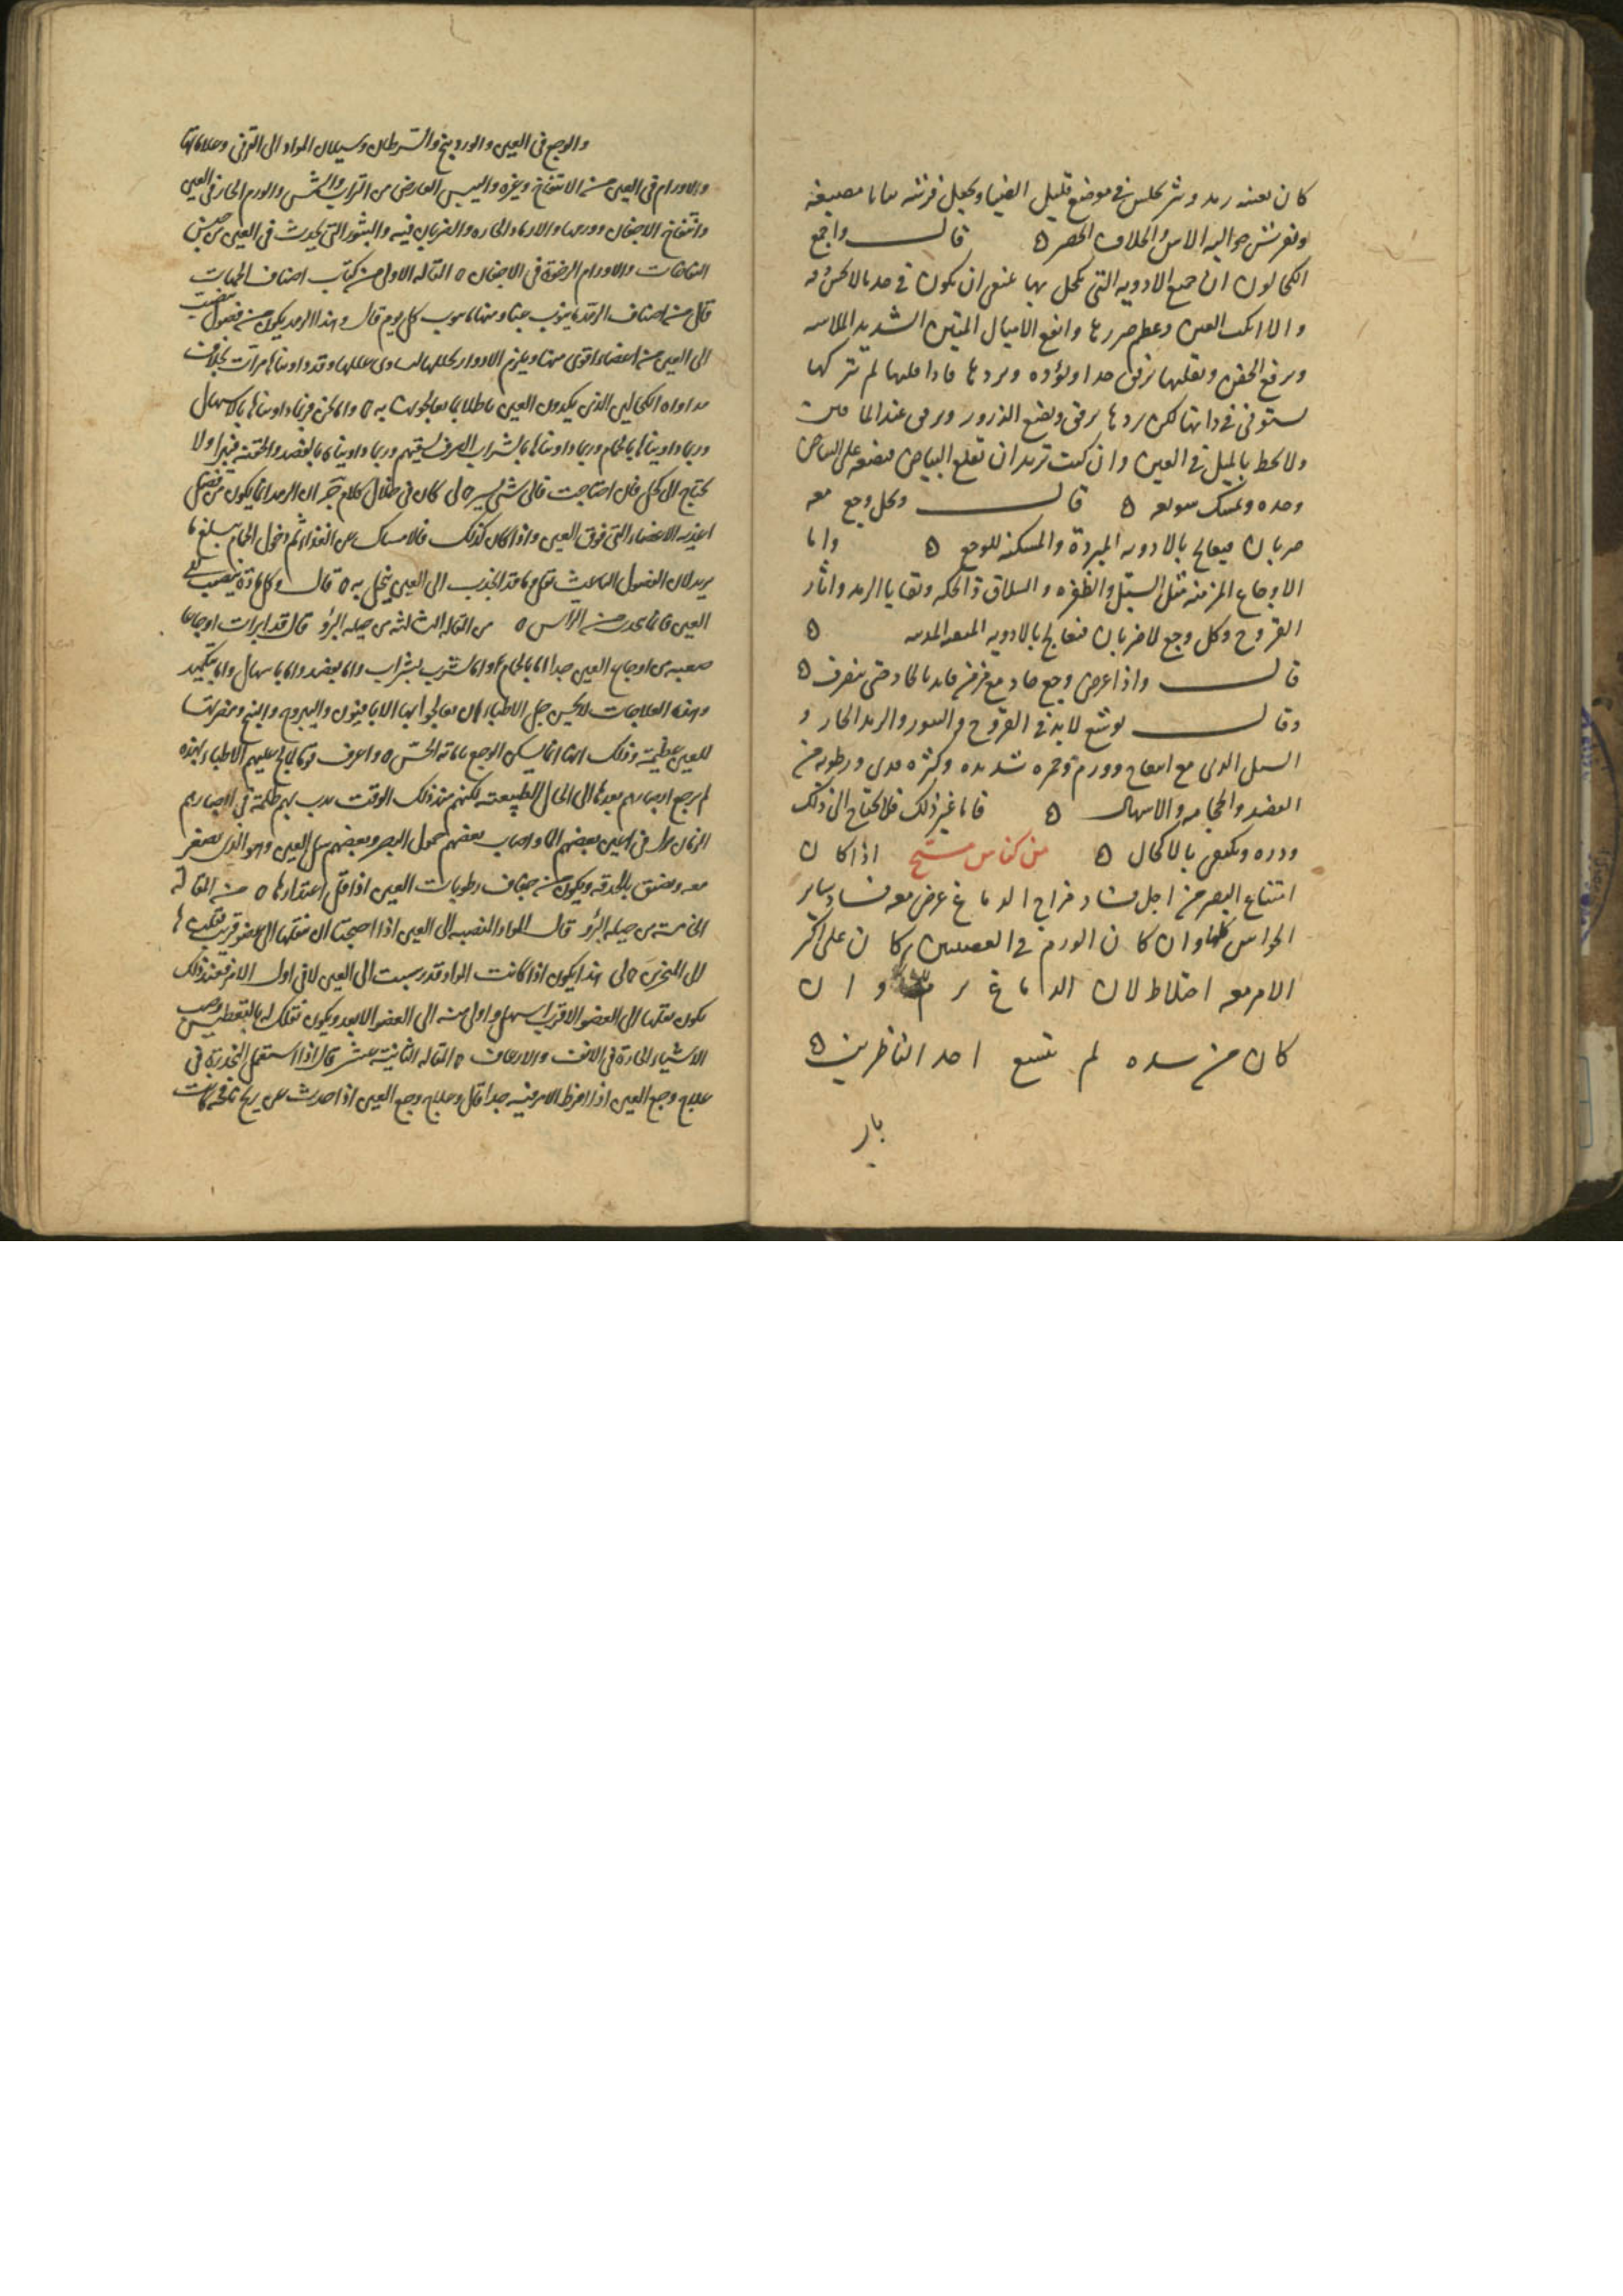 كان بعينه رمد وشر يجلس في موضع قليل الضيا ويجعل فرشه ثيابا مصبغه
ويفرش حواليه الاس والخلاف الخضر ه قال واجمع
الكحالون ان جميع الادويه التي يكحل بها ينبغي ان يكون في حد مالا يحس به
والا انكت العين وعظم ضررها وانفع الاميال المتين الشديد الملاسه
ويرفع الجفن ويقلبها برفق جدا وتؤده ويردها فاذا قلبها لم يتركها
ترجع في ذاتها لكن يردها برفق ويضع الذرور ويرمى عند الماقين
ولا يخط بالميل في العين وان كنت تريد ان تقلع البياض فضعه على البياض
وحده وتمسك سويعه ه قال وكل وجع معه
ضربان فيعالج بالادويه المبردة والمسكنه للوجع ه واما
الاوجاع المزمنه مثل السبل والظفره والسلاق والحكه وبقايا الرمد واثار
القروح وكل وجع لا ضربان فيعالج بالادويه ه
قال واذا عرض وجع حاد مع مزمن فابد بالحاد حتى ينصرف ه
وقال يوشع لا بد في القروح والبثور والرمد الحار و
السبل الذي مع انتفاخ وورم وحمره شديده وكثره قذى ورطوبه من
الفصد والحجامه والاسهال ه فاما غير ذلك فلا يحتاج الى ذلك
ودره ويكتفى بالاكحال ه من كناش مسيح اذا كان
امتناع البصر من اجل فساد مزاج الدماغ عرض معه فساد ساير
الحواس كلها وان كان الورم في العصبتين كان على اكثر
الامر معه اختلاط لان الدماغ يرم وان
كان من سده لم يتسع احد الناظرين ه
بار
والوجع في العين والوردينج والسرطان وسيلان المواد الى القرنى وعلاماتها
والاورام في العين من الانتفاخ وغيره واليبس العارض من التراب والشمس والورم الحار في العين
وانتفاخ الاجفان وورمها والارماد الحاره والضربان فيه والبثور التي تحدث في العين من جنس
النفاخات والاورام الرخوة في الاجفان ه المقاله الاولى من كتاب اصناف الحميات
قال من اصناف الرمد ما ينوب غبا ومنها ما ينوب كل يوم قال وهذا الرمد يكون من فضول تنصب
الى العين من اعضاء اقوى منها ويلزم الادوار وقد داويناها مرات بخلاف
مداواه الكحالين الذي يكدون العين باطلا بما يعالجون به ه واما نحن فربما داويناها بالاسهال
وربما داويناها بالحمام وربما داويناها بالشراب الصرف نسقيهم وربما داويناها بالفصد والحقنه فيبرا ولا
يحتاج الى كحل فان احتاجت فالى شي يسير ه لى كان في خلال كلام جر ان الرمد انما يكون من فضل
اغذيه الاعضاء التي فوق العين واذا كان كذلك فالامساك عن الغذاء ثم دخول الحمام يبلغ ما
يريد لان الفضول الباعث تقل وما قد انجذب الى العين ينحل به ه قال وكل مادة ينصب الى
العين فانما تحدر من الراس ه من المقاله الثالثه من حيله البرؤ قال قد ابرات اوجاعا
صعبه من اوجاع العين جدا اما بالحمام او اما بشرب شراب واما بفصد واما باسهال واما بتكميد
وهذه العلاجات لا يحسن جل الاطباء ان يعالجوا بها الا بالافيون واليبروح والبنج ومضرتها
للعين عظيمة وذلك انها انما يسكن الوجع باماته الحس ه واعرف قوما الح عليهم الاطباء بهذه
لم يرجع ابصارهم بعدها الى الحال الطبيعيه لكنهم منذ ذلك الوقت بهم ظلمة في ابصارهم
الزمان نزل في اعين بعضهم الما واصاب بعضهم خمول البصر وبعضهم سل العين وهو الذي يصغر
معه ويضيق بالحدقه ويكون من جفاف رطوبات العين اذا قل اغتذاؤها ه من المقالة
الخامسة من حيله البرؤ قال المواد المنصبه الى العين اذا احتجت ان تنقلها الى عضو قريب فانقلها
الى المنخرين ه لى هذا يكون اذا كانت المواد قد رسبت الى العين لا في اول الامر فعند ذلك
يكون نقلها الى العضو الاقرب اسهل واولى منه الى العضو الابعد ويكون نقلك له بالتعطيس وصب
الاشياء الحارة في الانف والارعاف ه المقاله الثانية عشر قال اذا استعمل المخدرة في
علاج وجع العين اذا افرط الامر فيه جدا قال وعلاج وجع العين اذا حدث عن ريح نافخه كانت